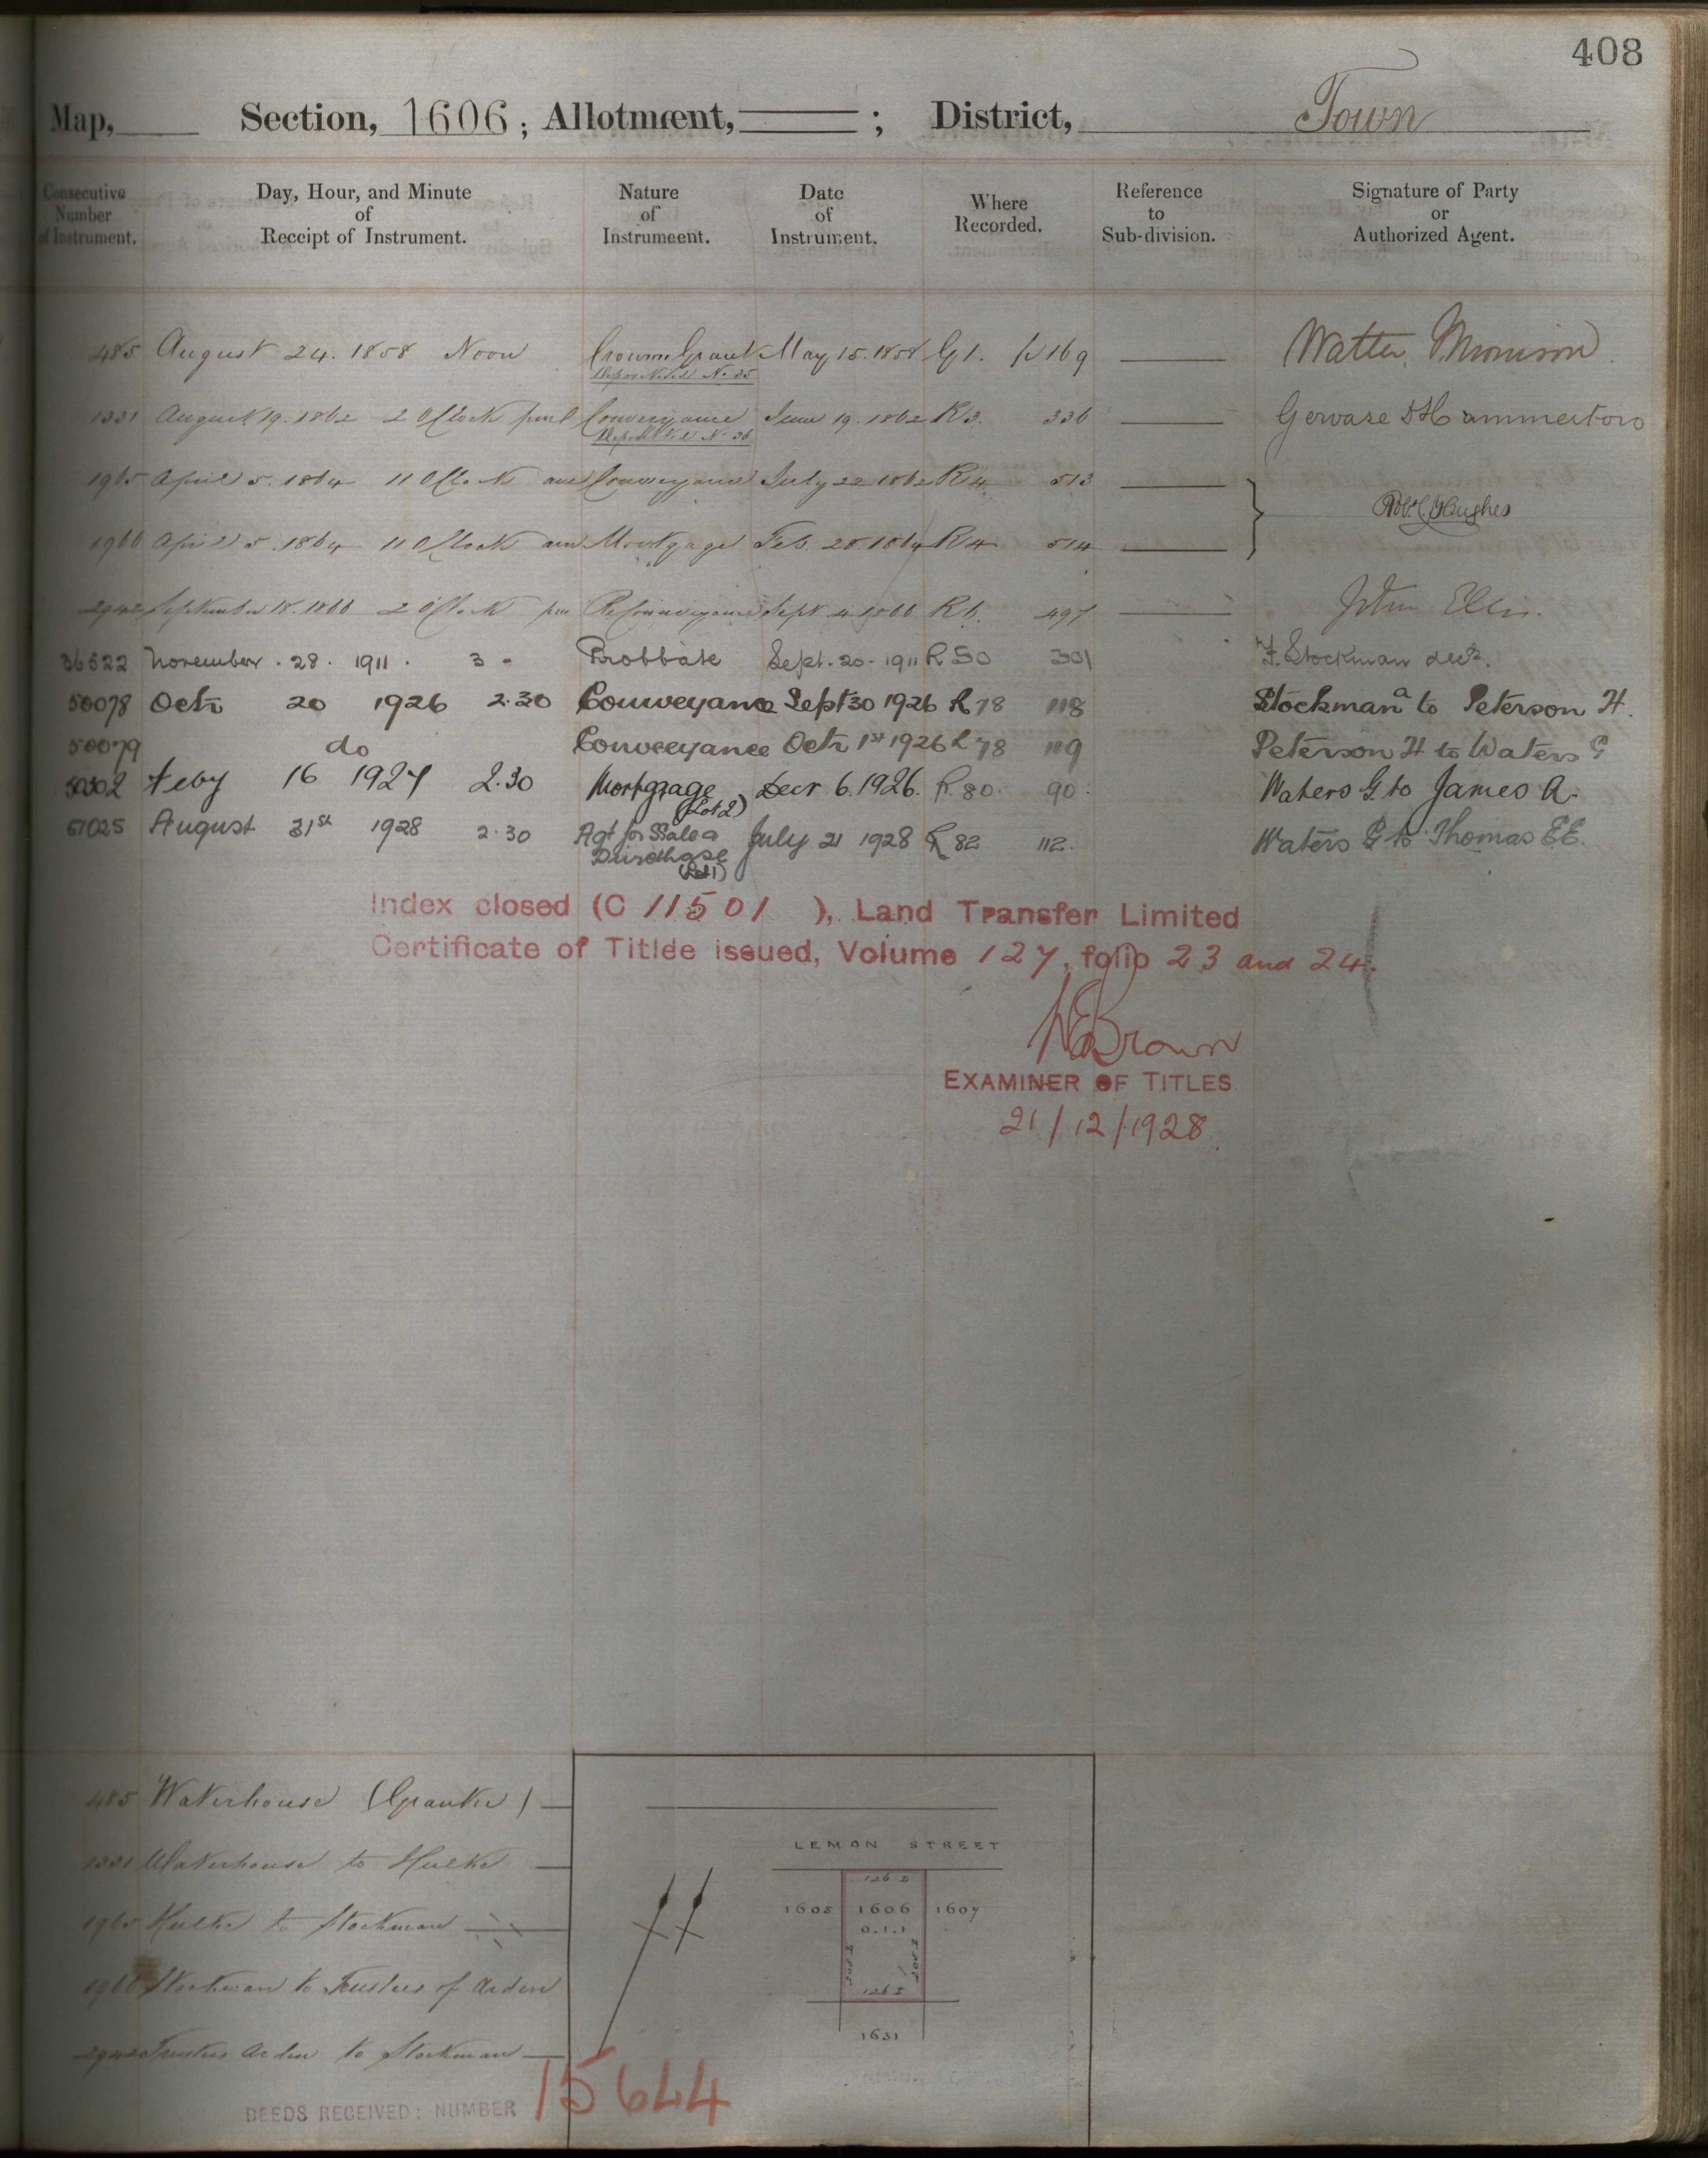 408
Map, Section, 1606; Allotment, ; District, Town
Consecutive Number of Instrument.
Day, Hour, and Minute of Receipt of Instrument.
Nature of Instrument.
Date of Instrument.
Where Recorded.
Reference to Sub-division.
Signature of Party or Authorized Agent.
485 August 24. 1858 Noon Crown Grant May 15. 1858 G1. p 169 Walter Morrison
Deposited No 35
1331 August 19. 1862 2 O'Clock pm Conveyance June 19. 1862 R3. 336 Gervase D Hammerton
Deposited No 36
1965 April 5. 1864 11 O'Clock am Conveyance July 22 1862 R4 513
Robt C Hughes
1966 April 5. 1864 11 O'Clock am Mortgage Feb. 25. 1864 R4 514
2942 September 18. 1866 2 O'Clock pm Reconveyance Sept. 4 1866 R6. 497 John Ellis.
36522 November. 28. 1911. 3 - Probate Sept. 20. 1911 R 50 301 F. Stockman decd.
50078 Octr 20 1926 2.30 Conveyance Sept 30 1926 R 78 118 Stockman a to Peterson H.
50079 do Conveyance Octr 1st 1926 R 78 119 Peterson H to Waters G
Feby 16 1927 2.30 Mortgage Decr 6. 1926. R. 80. 90. Waters G to James A.
(Lot 2)
August 31st 1928 2.30 Agt for Sale & July 21 1928 R 82 112. Waters G to Thomas E.E.
Purchase
(Lot 1)
Index closed (C 11501 ), Land Transfer Limited
Certificate of Title issued, Volume 127, folio 23 and 24.
Brown
EXAMINER OF TITLES
21/12/1928.
485 Waterhouse (Grantee)
1331 Waterhouse to Hulke
1965 Hulke to Stockman
1966 Stockman to Trustees of Arden
2942 Trustees Arden to Stockman
LEMON STREET
126
1605 1606 1607
0.1.1
205
205
126
1631
DEEDS RECEIVED: NUMBER 15644